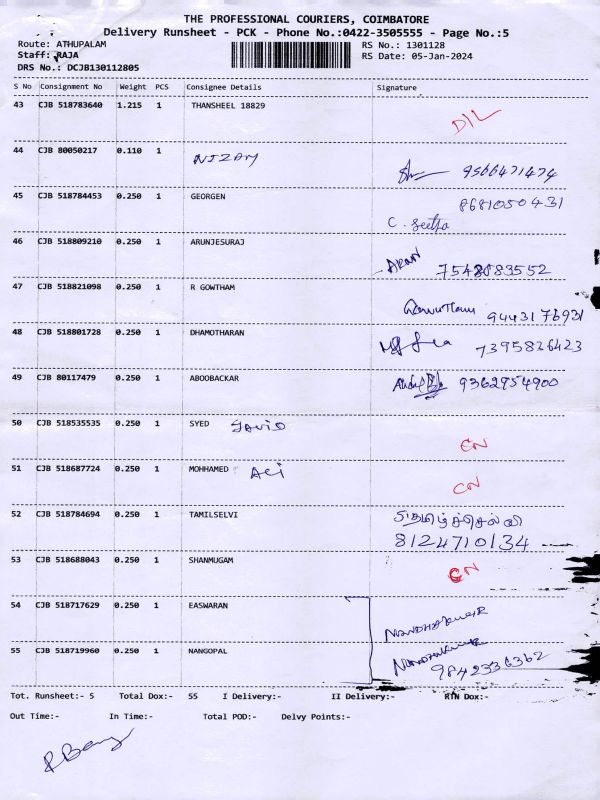 THE PROFESSIONAL COURIERS, COIMBATORE
Delivery Runsheet - PCK - Phone No.:0422-3505555 - Page No.:5
Route: ATHUPALAM RS No.: 1301128
Staff: RAJA RS Date: 05-Jan-2024
DRS No.: DCJB130112805
S No Consignment No Weight PCS Consignee Details Signature
43 CJB 518783640 1.215 1 THANSHEEL 18829
D/L
44 CJB 80050217 0.110 1 NIZAM
9566471474
45 CJB 518784453 0.250 1 GEORGEN 8681050431
C. Seetha
46 CJB 518809210 0.250 1 ARUNJESURAJ
ARUN 7548883552
47 CJB 518821098 0.250 1 R GOWTHAM
Gowtham 9443176931
48 CJB 518801728 0.250 1 DHAMOTHARAN
7395826423
49 CJB 80117479 0.250 1 ABOOBACKAR 9362954900
50 CJB 518535535 0.250 1 SYED JAVID
CN
51 CJB 518687724 0.250 1 MOHHAMED ALI
CN
52 CJB 518784694 0.250 1 TAMILSELVI தமிழ்ச்செல்வி
8124710134
53 CJB 518688043 0.250 1 SHANMUGAM
CN
54 CJB 518717629 0.250 1 EASWARAN
NANDHAKUMAR
55 CJB 518719960 0.250 1 NANGOPAL NANDHAKUMAR
9842336362
Tot. Runsheet:- 5 Total Dox:- 55 I Delivery:- II Delivery:- RTN Dox:-
Out Time:- In Time:- Total POD:- Delvy Points:-